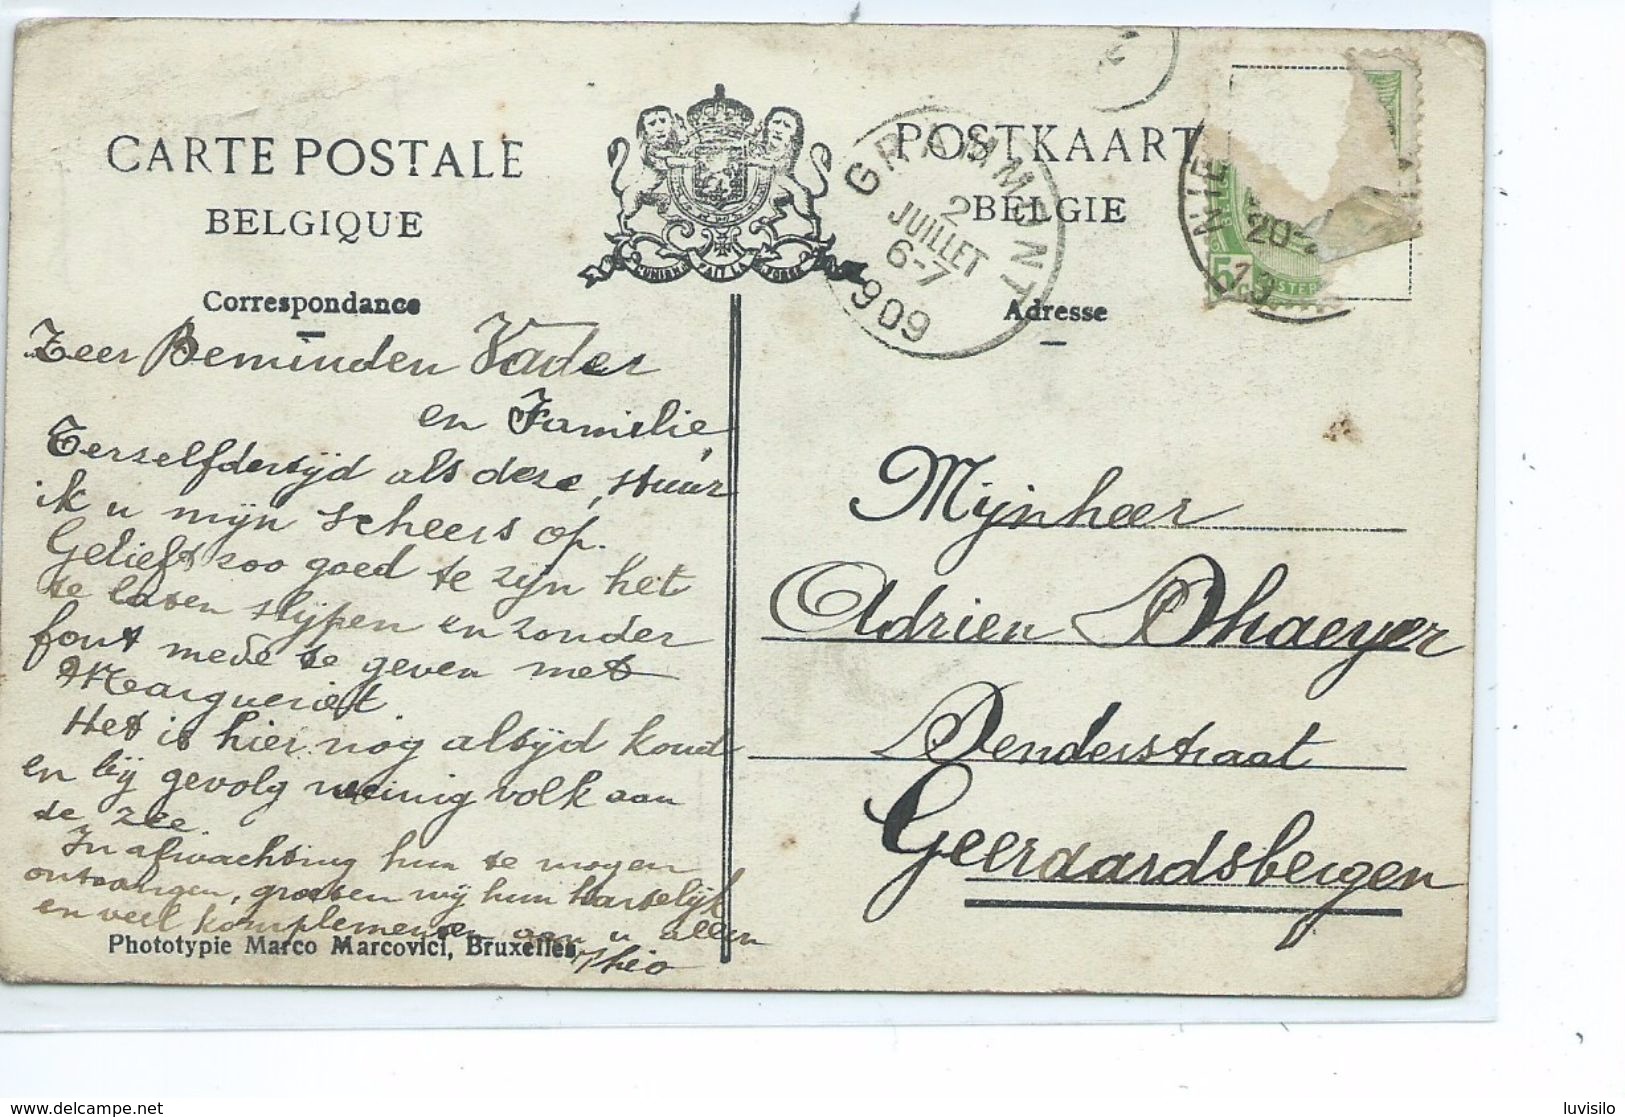 CARTE POSTALE
BELGIQUE
POSTKAART
BELGIE
L'UNION FAIT LA FORCE
GRAMMONT
2
JUILLET
6-7
1909
NIE
20
5
Correspondance
Adresse
Zeer Beminden Vader
en Familie,
Terzelfdertijd als deze, stuur
ik u mijn scheers op.
Gelieft zoo goed te zijn het
te laten slijpen en zonder
fout mede te geven met
Margueriet.
Het is hier nog altijd koud
en bij gevolg weinig volk aan
de zee.
In afwachting hun te mogen
ontvangen, groeten wij hun hartelijk
en veel komplementen aan u allen
Theo
Mijnheer
Adrien Dhaeyer
Denderstraat
Geeraardsbergen
Phototypie Marco Marcovici, Bruxelles
www.delcampe.net
luvisilo